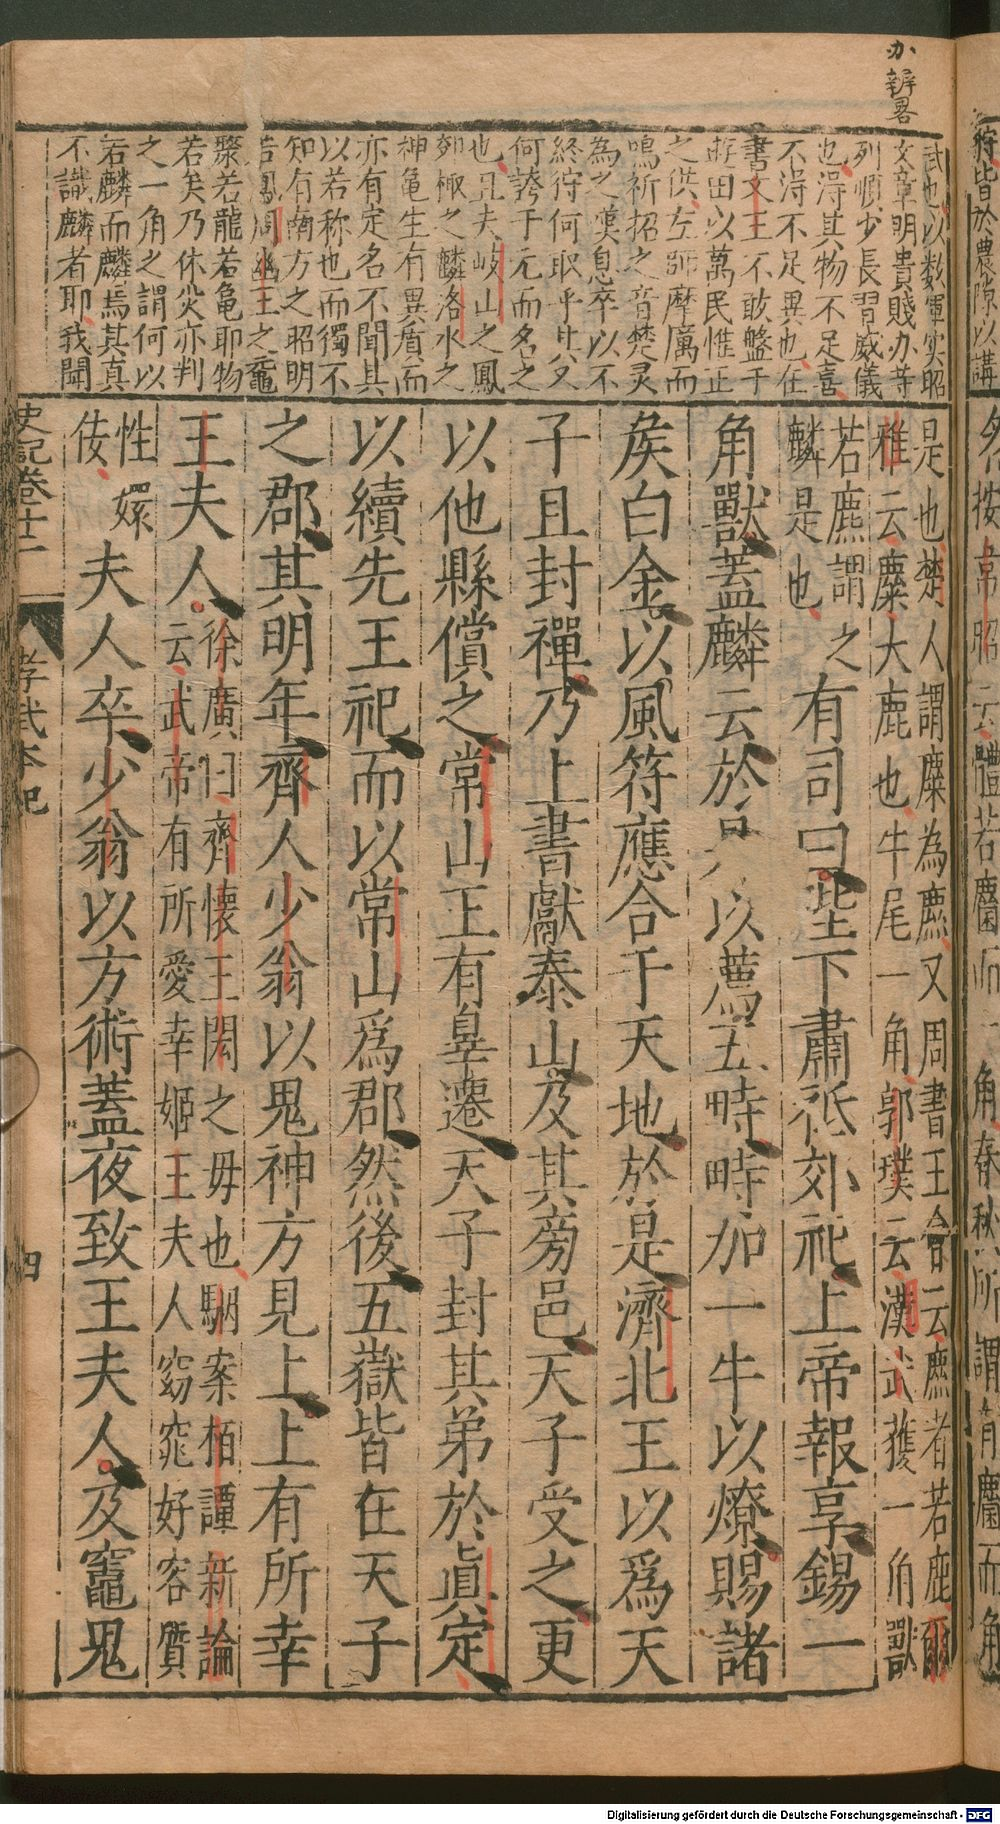 办辯畧
武也以数軍实昭
文章明貴賤办等
列順少長習威儀
也淂其物不足喜
不淂不足異也在
書文王不敢盤于
遊田以萬民惟正
之供左師摩厲而
鳴祈招之音楚灵
為之嘆息卒以不
終狩何取乎其又
何誇于元而名之
也且夫岐山之鳳
郊棷之麟洛水之
神亀生有異質而
亦有定名不聞其
以若称也而獨不
知有南方之昭明
若鳳周幽王之黿
漦若龍若亀耶物
若矣乃休災亦判
之一角之謂何以
若麟而麟焉其真
不識麟者耶我聞
是也楚人謂麋為麃又周書王會云麃者若鹿爾
雅云麋大鹿也牛尾一角郭璞云漢武獲一角獸
若麃謂之
麟是也
有司曰陛下肅祗郊祀上帝報享錫一
角獸蓋麟云於是以薦五畤畤加一牛以燎賜諸
矦白金以風符應合于天地於是濟北王以爲天
子且封禪乃上書獻泰山及其旁邑天子受之更
以他縣償之常山王有辠遷天子封其弟於真定
以續先王祀而以常山爲郡然後五嶽皆在天子
之郡其明年齊人少翁以鬼神方見上上有所幸
王夫人
徐廣曰齊懷王閎之毋也駰案栢譚新論
云武帝有所愛幸姬王夫人窈窕好容質
性嬛
佞
夫人卒少翁以方術蓋夜致王夫人及竈鬼
史記卷十二 孝武本紀 四
Digitalisierung gefördert durch die Deutsche Forschungsgemeinschaft - DFG